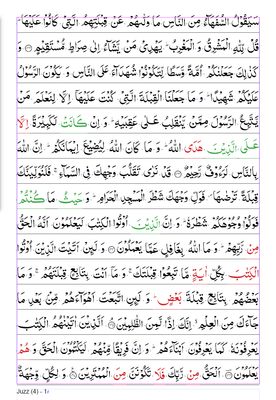 سَيَقُوْلُ السُّفَهَآءُ مِنَ النَّاسِ مَا وَلّٰىهُمْ عَنْ قِبْلَتِهِمُ الَّتِيْ كَانُوْا عَلَيْهَا ؕ
قُلْ لِّلّٰهِ الْمَشْرِقُ وَ الْمَغْرِبُ ؕ يَهْدِيْ مَنْ يَّشَآءُ اِلٰى صِرَاطٍ مُّسْتَقِيْمٍ ۝ وَ
كَذٰلِكَ جَعَلْنٰكُمْ اُمَّةً وَّسَطًا لِّتَكُوْنُوْا شُهَدَآءَ عَلَى النَّاسِ وَ يَكُوْنَ الرَّسُوْلُ
عَلَيْكُمْ شَهِيْدًا ؕ وَ مَا جَعَلْنَا الْقِبْلَةَ الَّتِيْ كُنْتَ عَلَيْهَاۤ اِلَّا لِنَعْلَمَ مَنْ
يَّتَّبِعُ الرَّسُوْلَ مِمَّنْ يَّنْقَلِبُ عَلٰى عَقِبَيْهِ ؕ وَ اِنْ كَانَتْ لَكَبِيْرَةً اِلَّا
عَلَى الَّذِيْنَ هَدَى اللّٰهُ ؕ وَ مَا كَانَ اللّٰهُ لِيُضِيْعَ اِيْمَانَكُمْ ؕ اِنَّ اللّٰهَ
بِالنَّاسِ لَرَءُوْفٌ رَّحِيْمٌ ۝ قَدْ نَرٰى تَقَلُّبَ وَجْهِكَ فِي السَّمَآءِ ۚ فَلَنُوَلِّيَنَّكَ
قِبْلَةً تَرْضٰىهَا ۪ فَوَلِّ وَجْهَكَ شَطْرَ الْمَسْجِدِ الْحَرَامِ ؕ وَ حَيْثُ مَا كُنْتُمْ
فَوَلُّوْا وُجُوْهَكُمْ شَطْرَهٗ ؕ وَ اِنَّ الَّذِيْنَ اُوْتُوا الْكِتٰبَ لَيَعْلَمُوْنَ اَنَّهُ الْحَقُّ
مِنْ رَّبِّهِمْ ؕ وَ مَا اللّٰهُ بِغَافِلٍ عَمَّا يَعْمَلُوْنَ ۝ وَ لَىِٕنْ اَتَيْتَ الَّذِيْنَ اُوْتُوا
الْكِتٰبَ بِكُلِّ اٰيَةٍ مَّا تَبِعُوْا قِبْلَتَكَ ۚ وَ مَاۤ اَنْتَ بِتَابِعٍ قِبْلَتَهُمْ ۚ وَ مَا
بَعْضُهُمْ بِتَابِعٍ قِبْلَةَ بَعْضٍ ؕ وَ لَىِٕنِ اتَّبَعْتَ اَهْوَآءَهُمْ مِّنْ بَعْدِ مَا
جَآءَكَ مِنَ الْعِلْمِ ۙ اِنَّكَ اِذًا لَّمِنَ الظّٰلِمِيْنَ ۝ اَلَّذِيْنَ اٰتَيْنٰهُمُ الْكِتٰبَ
يَعْرِفُوْنَهٗ كَمَا يَعْرِفُوْنَ اَبْنَآءَهُمْ ؕ وَ اِنَّ فَرِيْقًا مِّنْهُمْ لَيَكْتُمُوْنَ الْحَقَّ وَ هُمْ
يَعْلَمُوْنَ ۝ اَلْحَقُّ مِنْ رَّبِّكَ فَلَا تَكُوْنَنَّ مِنَ الْمُمْتَرِيْنَ ۝ وَ لِكُلٍّ وِّجْهَةٌ
Juzz (4) -